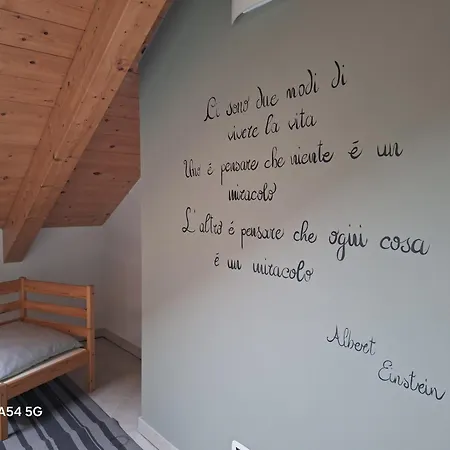 Ci sono due modi di
vivere la vita
Uno é pensare che niente é un
miracolo
L'altro é pensare che ogni cosa
é un miracolo
Albert
Einstein
A54 5G